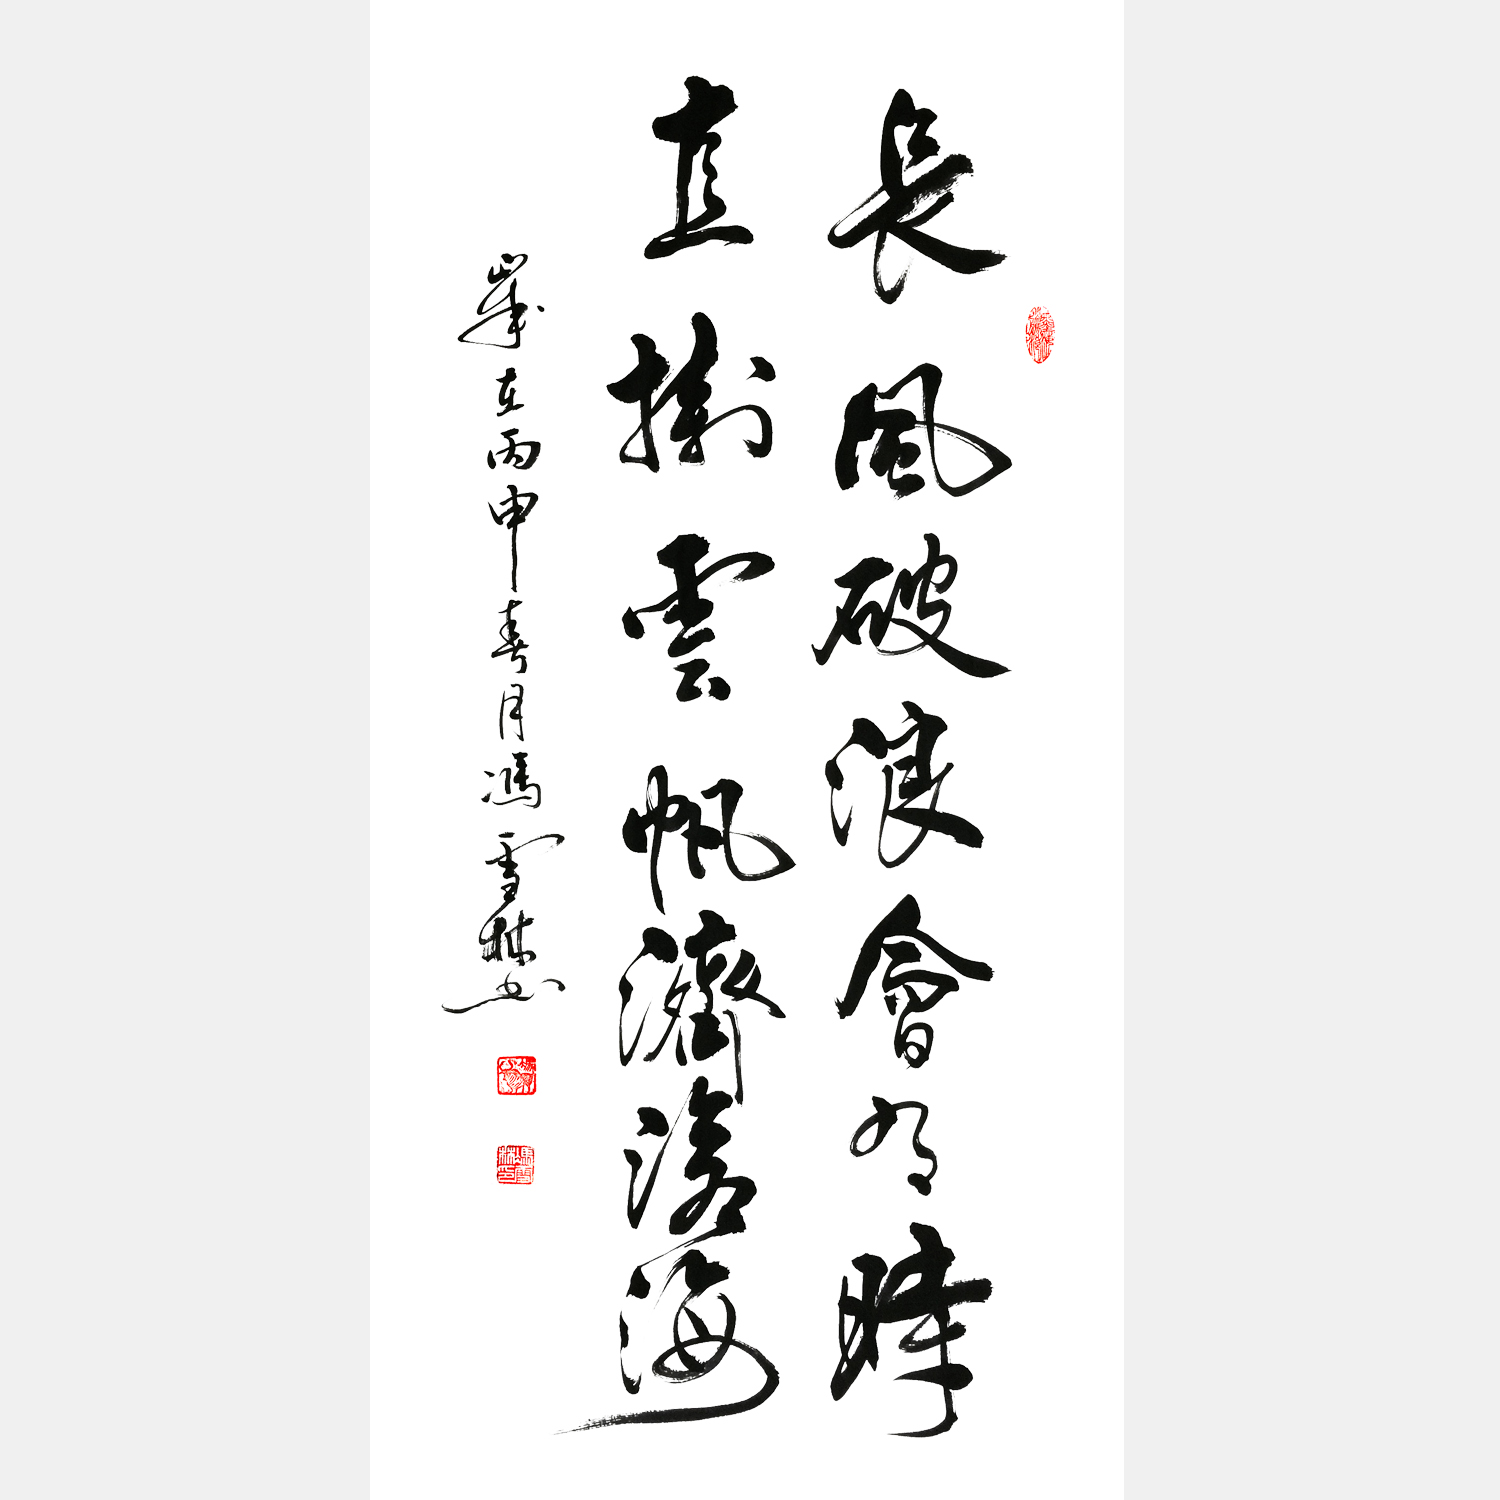 長風破浪會有時
直掛雲帆濟滄海
歲在丙申春月馮雪林書
馮雪林印